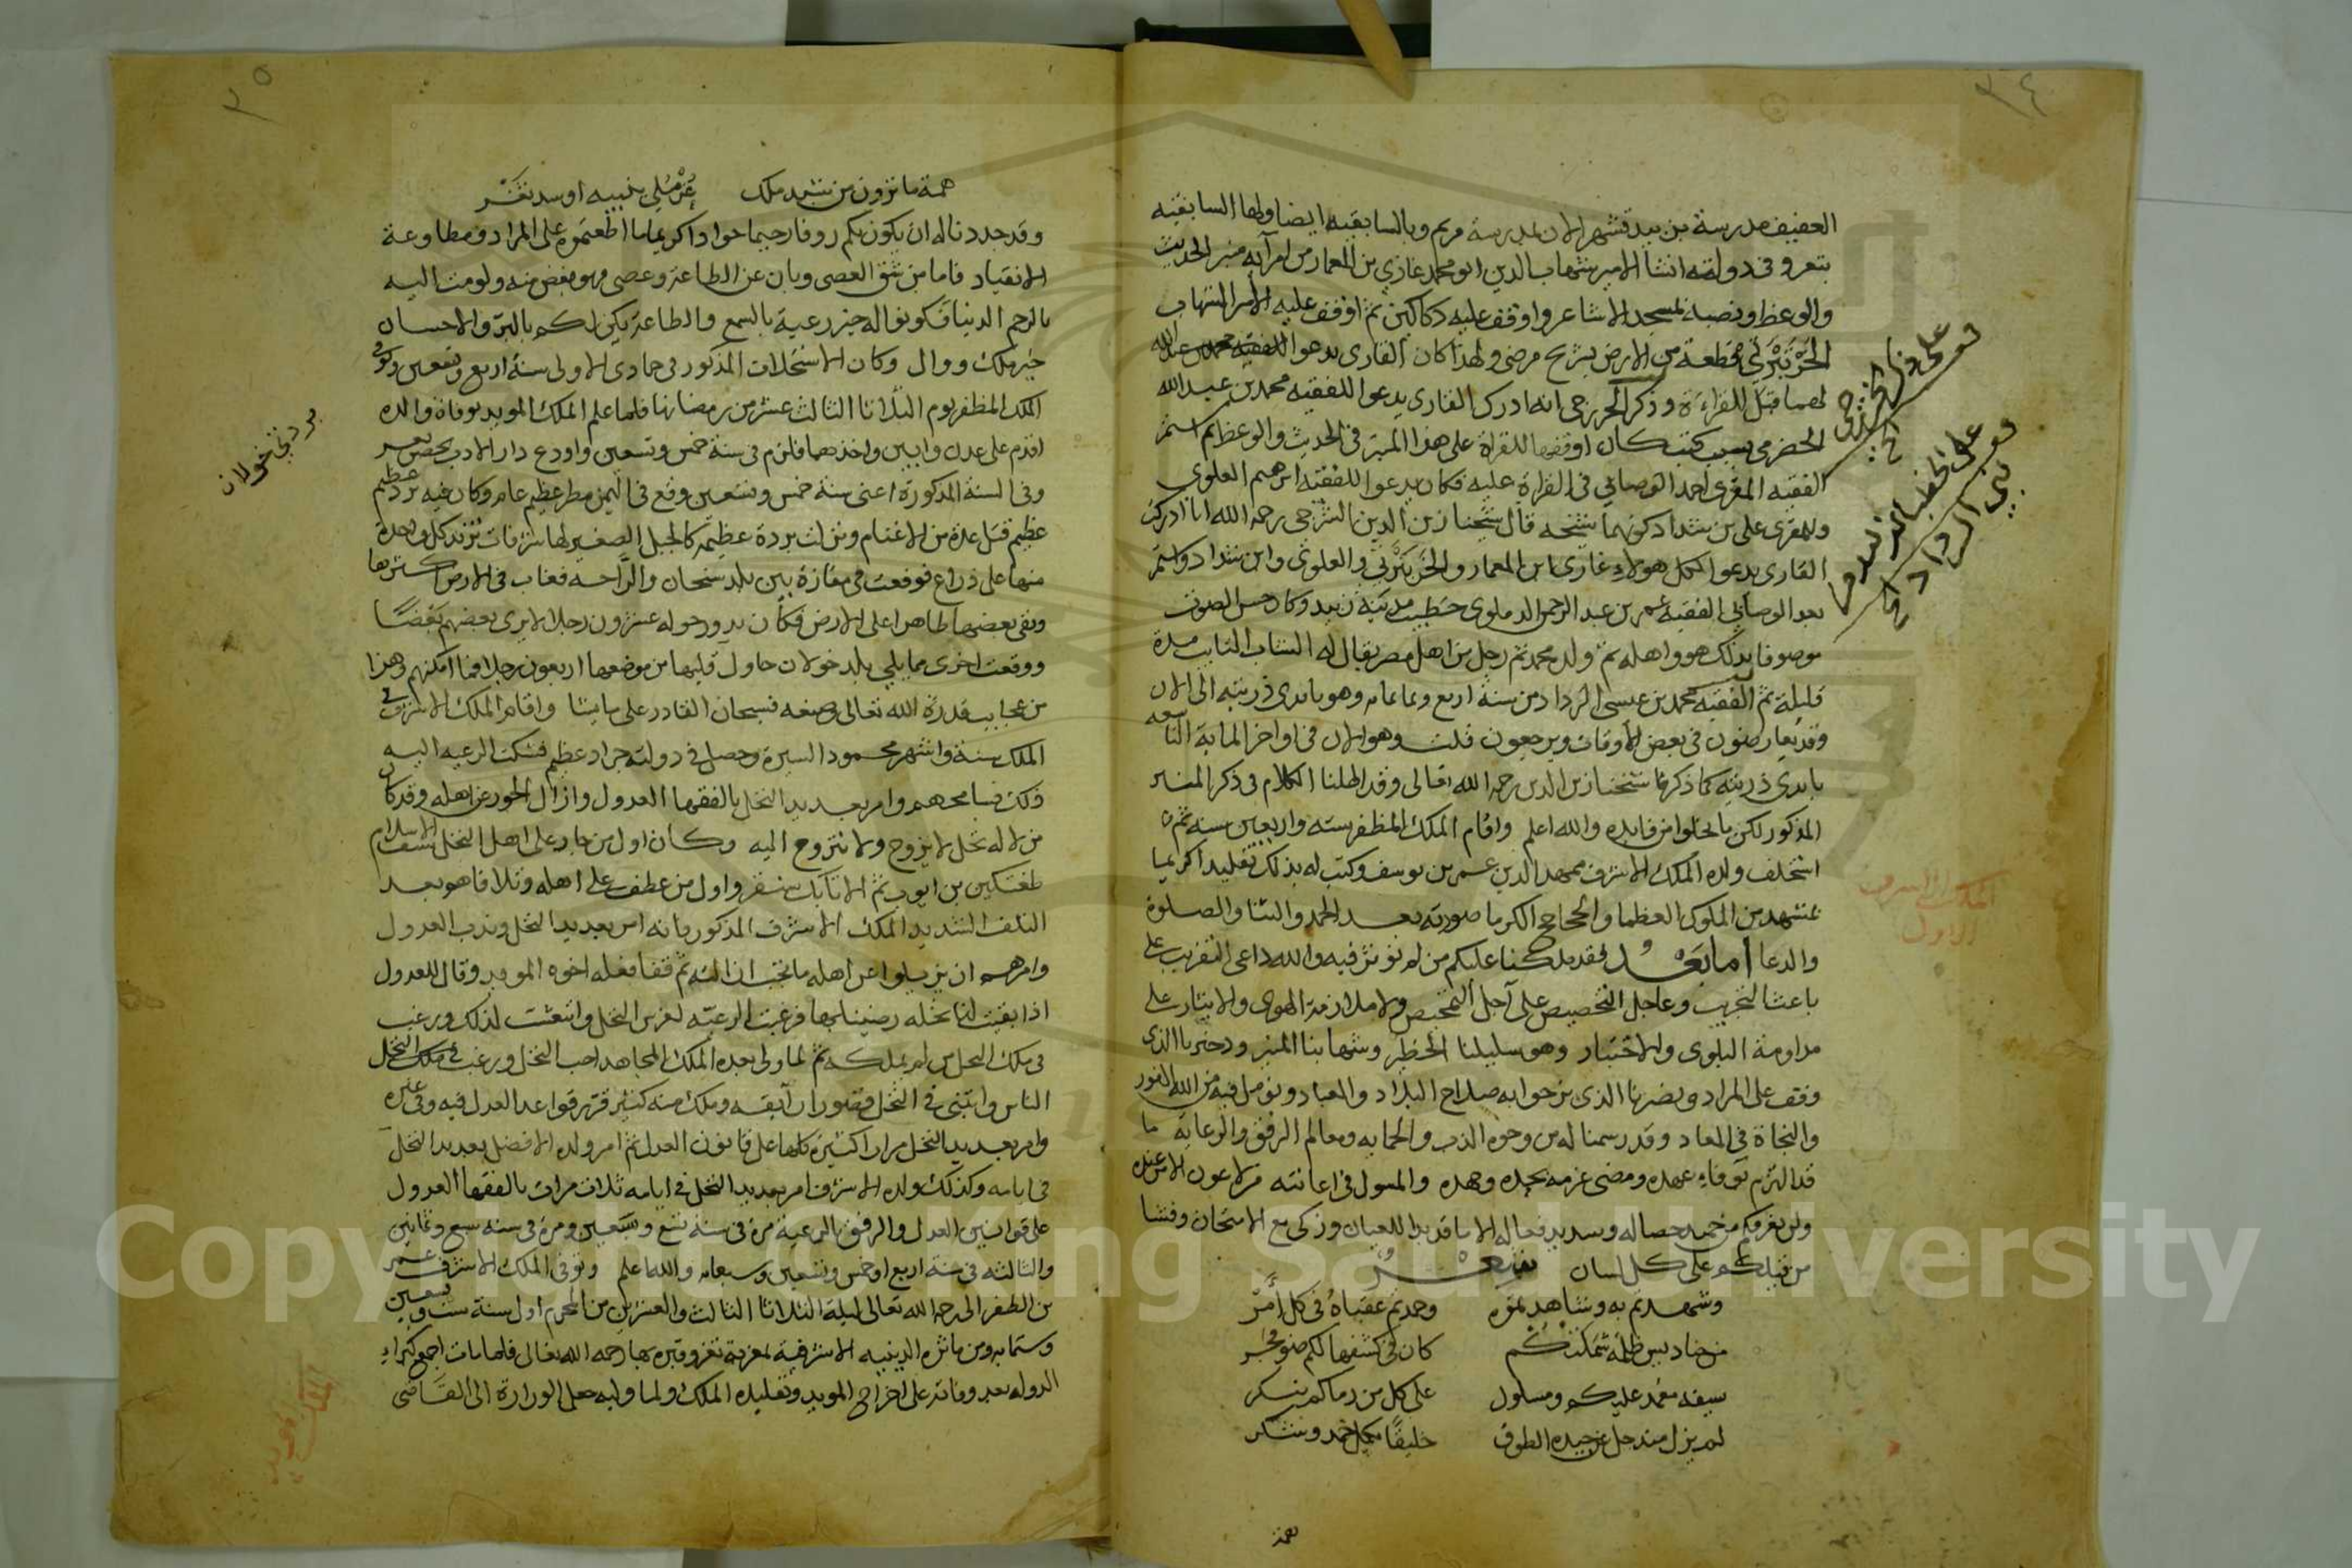 ٣٤
العفيف مدرسة بن بيد قشهر الان بمدرسة مريم وبالسابقيه ايضا ولها السابقيه
بتعر وفي دولته انشا الامير شهاب الدين ابو محمد غازي بن المعمار من امرآيه منبر الحديث
والوعظ ونصبه لمسجد الاشاعر واوقف عليه دكاكين ثم اوقف عليه الامير الشهاب
الخرتبرتي قطعة من الارض بشريح مرضي ولهذا كان القارى يدعوا للفقيه محمد بن عبد الله
لهما قبل القراءة وذكر الخزرجي انه ادرك القارى يدعوا للفقيه محمد بن عبد الله
الحضرمي بسبب كتب كان اوقفها للقراة على هذا المنبر في الحديث والوعظ ثم استمر
الفقيه المقرى احمد الوصابي في القراة عليه فكان يدعوا للفقيه ابرهيم العلوي
وللمقرى علي بن شداد كونهما شيخه قال شيخنا زين الدين الشرجي رحمه الله انا ادركت
القارى يدعوا لكل هولاء غازي ابن المعمار والخرتبرتي والعلوي وابن شداد واستمر
بعد الوصابي الفقيه عمر بن عبد الرحمن الدملوي خطيب مدينة زبيد وكان حسن الصوت
موصوفا بذلك هو واهله ثم ولده محمد ثم رجل من اهل مصر يقال له الشاب التايب مدة
قليلة ثم الفقيه محمد بن عيسى الرداد من سنة اربع وثمانمايه وهو بايدي ذريته الى الان
وقد يعارضون في بعض الاوقات ويرجعون قلت وهو الان في اواخر الماية التاسعه
بايدي ذريته كما ذكره شيخنا زين الدين رحمه الله تعالى وقد اطلنا الكلام في ذكر المنبر
المذكور لكن ما يخلوا من فايده والله اعلم واقام الملك المظفر سته واربعين سنه ثم
استخلف ولده الملك الاشرف ممهد الدين عمر بن يوسف وكتب له بذلك تقليدا كريما
بمشهد من الملوك العظما والجحاجح الكرما صورته بعد الحمد والثنا والصلوة
والدعا اما بعد لقد ملكنا عليكم من لم نوثر فيه والله داعي التقريب على
باعث التجريب وعاجل التخصيص على آجل التمحيص ولا ملازمة الهوى والايثار على
مداومة البلوى والاختبار وهو سليلنا الخطير وشهابنا المنير وذخرنا الذى
وقف على المراد ونضرنا الذى نرجوا به صلاح البلاد والعباد ونومل فيه من الله الفوز
والنجاة في المعاد وقد رسمنا له من وجوه الذب والحمايه ومعالم الرفق والرعايه ما
قد التزم بوفاء عهده ومضى عزمه بجده وجهده والمسول في اعانته من لا عون الا من عنده
ولن نعرفكم من حميد خصاله وسديد فعاله الا ما قد بدا للعيان وزكى مع الامتحان وفشا
من قبلكم على كل لسان شعر
وشهدتم به وشاهدتموه وحمدتم عقباه في كل أمر
من حنادس ظلمة شملتكم كان في كشفها لكم ضوء فجر
سيفه مغمد عليكم ومسلول على كل من رماكم بنكر
لم يزل منذ حل عن جيده الطوق خليقا بكل حمد وشكر
همة
على وفاة الخزرجي
الملك الاشرف
الاول
٣٥
همة ما ترون من تشيد ملك
وقد حددنا له ان يكون بكم روفا رحيما جوادا كريما ما اطعتموه على المراد ومطاوعة
الانقياد فاما من شق العصى وبان عن الطاعة وعصى فهو مفض منه ولو مت اليه
بالرحم الدنيا فكونوا له خير رعية بالسمع والطاعة يكن لكم بالبر والاحسان
خير ملك ووال وكان الاستخلاف المذكور في جمادى الاولى سنة اربع وتسعين وتوفي
الملك المظفر يوم الثلاثا الثالث عشر من رمضانها فلما علم الملك المويد بوفاة والده
اقدم على عدن وابين واخذهما فلزم في سنة خمس وتسعين واودع دار الادب بحصن تعز
وفي السنة المذكورة اعني سنة خمس وتسعين وقع في اليمن مطر عظيم عام وكان فيه برد عظيم
عظيم قتل عدة من الاغنام ونزلت بردة عظيمة كالجبل الصغير لها شرفات تزيد كل واحدة
منها على ذراع فوقعت في مفازة بين بلد سنحان والراحه فغاب في الارض اكثرها
وبقى بعضها ظاهرا على الارض فكان يدور حوله عشرون رجلا لا يرى بعضهم بعضا
ووقعت اخرى مما يلي بلد خولان حاول قلبها من موضعها اربعون رجلا فما امكنهم وهذا
من عجايب قدرة الله تعالى وصنعه فسبحان القادر على ما يشا واقام الملك الاشرف في
الملك سنة واشهر محمود السيرة وحصل في دولته جراد عظيم فشكت الرعيه اليه
ذلك فسامحهم وامر بعديد النخل بالفقها العدول وازال الجور عن اهله وقد كان
من لاله نخل لا يزوج ولا يتزوج اليه وكان اول من جار على اهل النخل سيف الاسلام
طغتكين بن ايوب ثم الاتابك سنقر واول من عطف على اهله وتلافاهم بعد
التلف الشديد الملك الاشرف المذكور بانه امر بعديد النخل وندب العدول
وامرهم ان يزيلوا عن اهله ما ثم قفا فعله اخوه المويد وقال للعدول
اذا بقيت لنا نخله رضينا بها فرغبت الرعيه لغرس النخل وانبعثت لذلك ورغب
في ملك النخل من لم يملكه ثم لما ولي بعده الملك المجاهد احب النخل ورغب في ملك النخل
الناس وابتنى في النخل قصورا آنيقه وملك منه كثير قرر قواعد العدل فيه وفي غيره
وامر بعديد النخل مرارا كثيرة كلها على قانون العدل ثم امر ولده الافضل بعديد النخل
في ايامه وكذلك ولده الاشرف امر بعديد النخل في ايامه ثلاث مرات بالفقها العدول
على قوانين العدل والرفق بالرعية مرة في سنة تسع وسبعين ومرة في سنه سبع وثمانين
والثالثه في سنة اربع او خمس وتسعين وسبعمايه والله اعلم وتوفي الملك الاشرف عمر
بن المظفر الى رحمة الله تعالى ليلة الثلاثا الثالث والعشرين من المحرم اول سنة ست وتسعين
وستمايه ومن ماثره الدينيه الاشرفية بمغربة تعز وقبره بها رحمه الله تعالى فلما مات اجمع كبراء
الدوله بعد وفاته على اخراج المويد وتقليده الملك ولما وليه جعل الوزارة الى القاضي
بردتي خولان
الملك المويد
Copyright © King Saud University